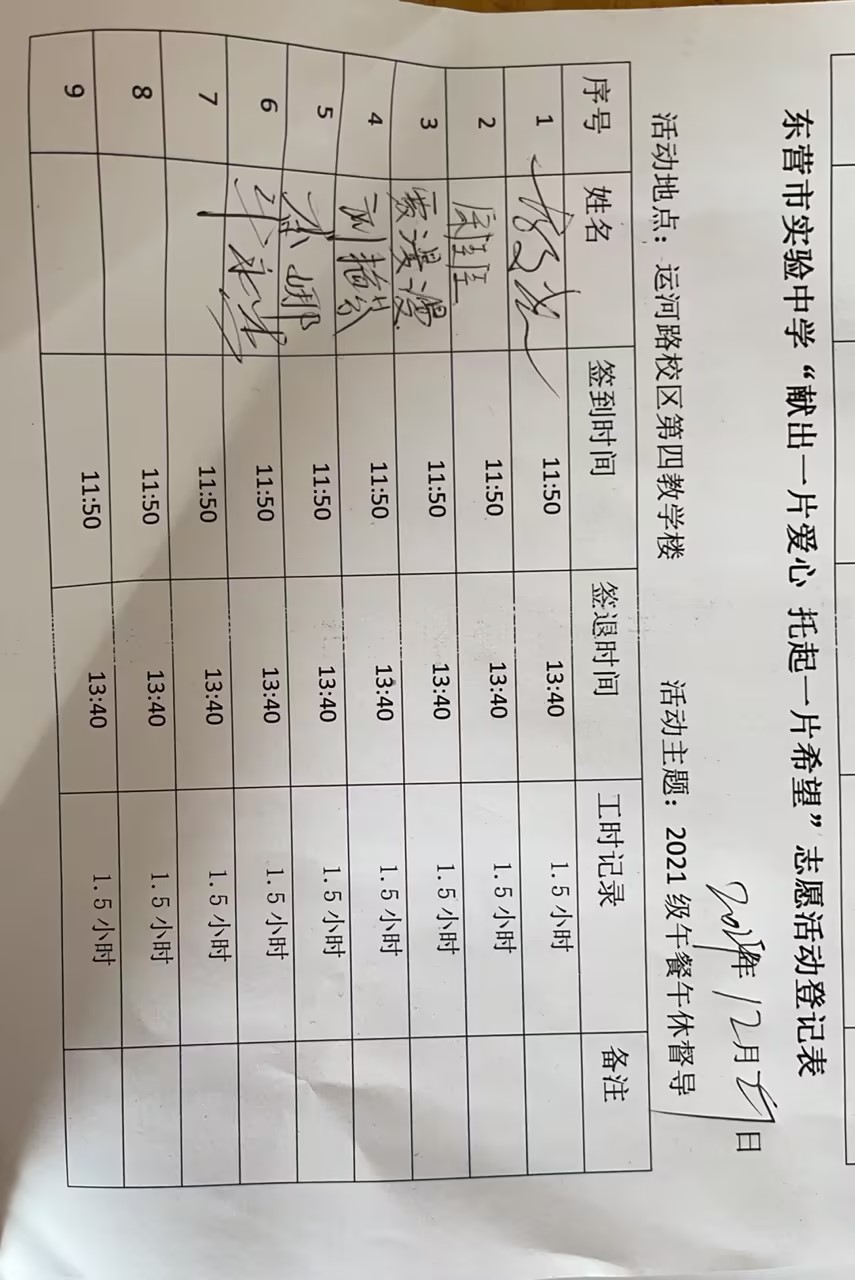 东营市实验中学“献出一片爱心 托起一片希望”志愿活动登记表
年12月 日
活动地点：运河路校区第四教学楼 活动主题：2021级午餐午休督导
序号 姓名 签到时间 签退时间 工时记录 备注
1 11:50 13:40 1.5小时
2 11:50 13:40 1.5小时
3 11:50 13:40 1.5小时
4 刘 11:50 13:40 1.5小时
5 李娜 11:50 13:40 1.5小时
6 11:50 13:40 1.5小时
7 11:50 13:40 1.5小时
8 11:50 13:40 1.5小时
9 11:50 13:40 1.5小时